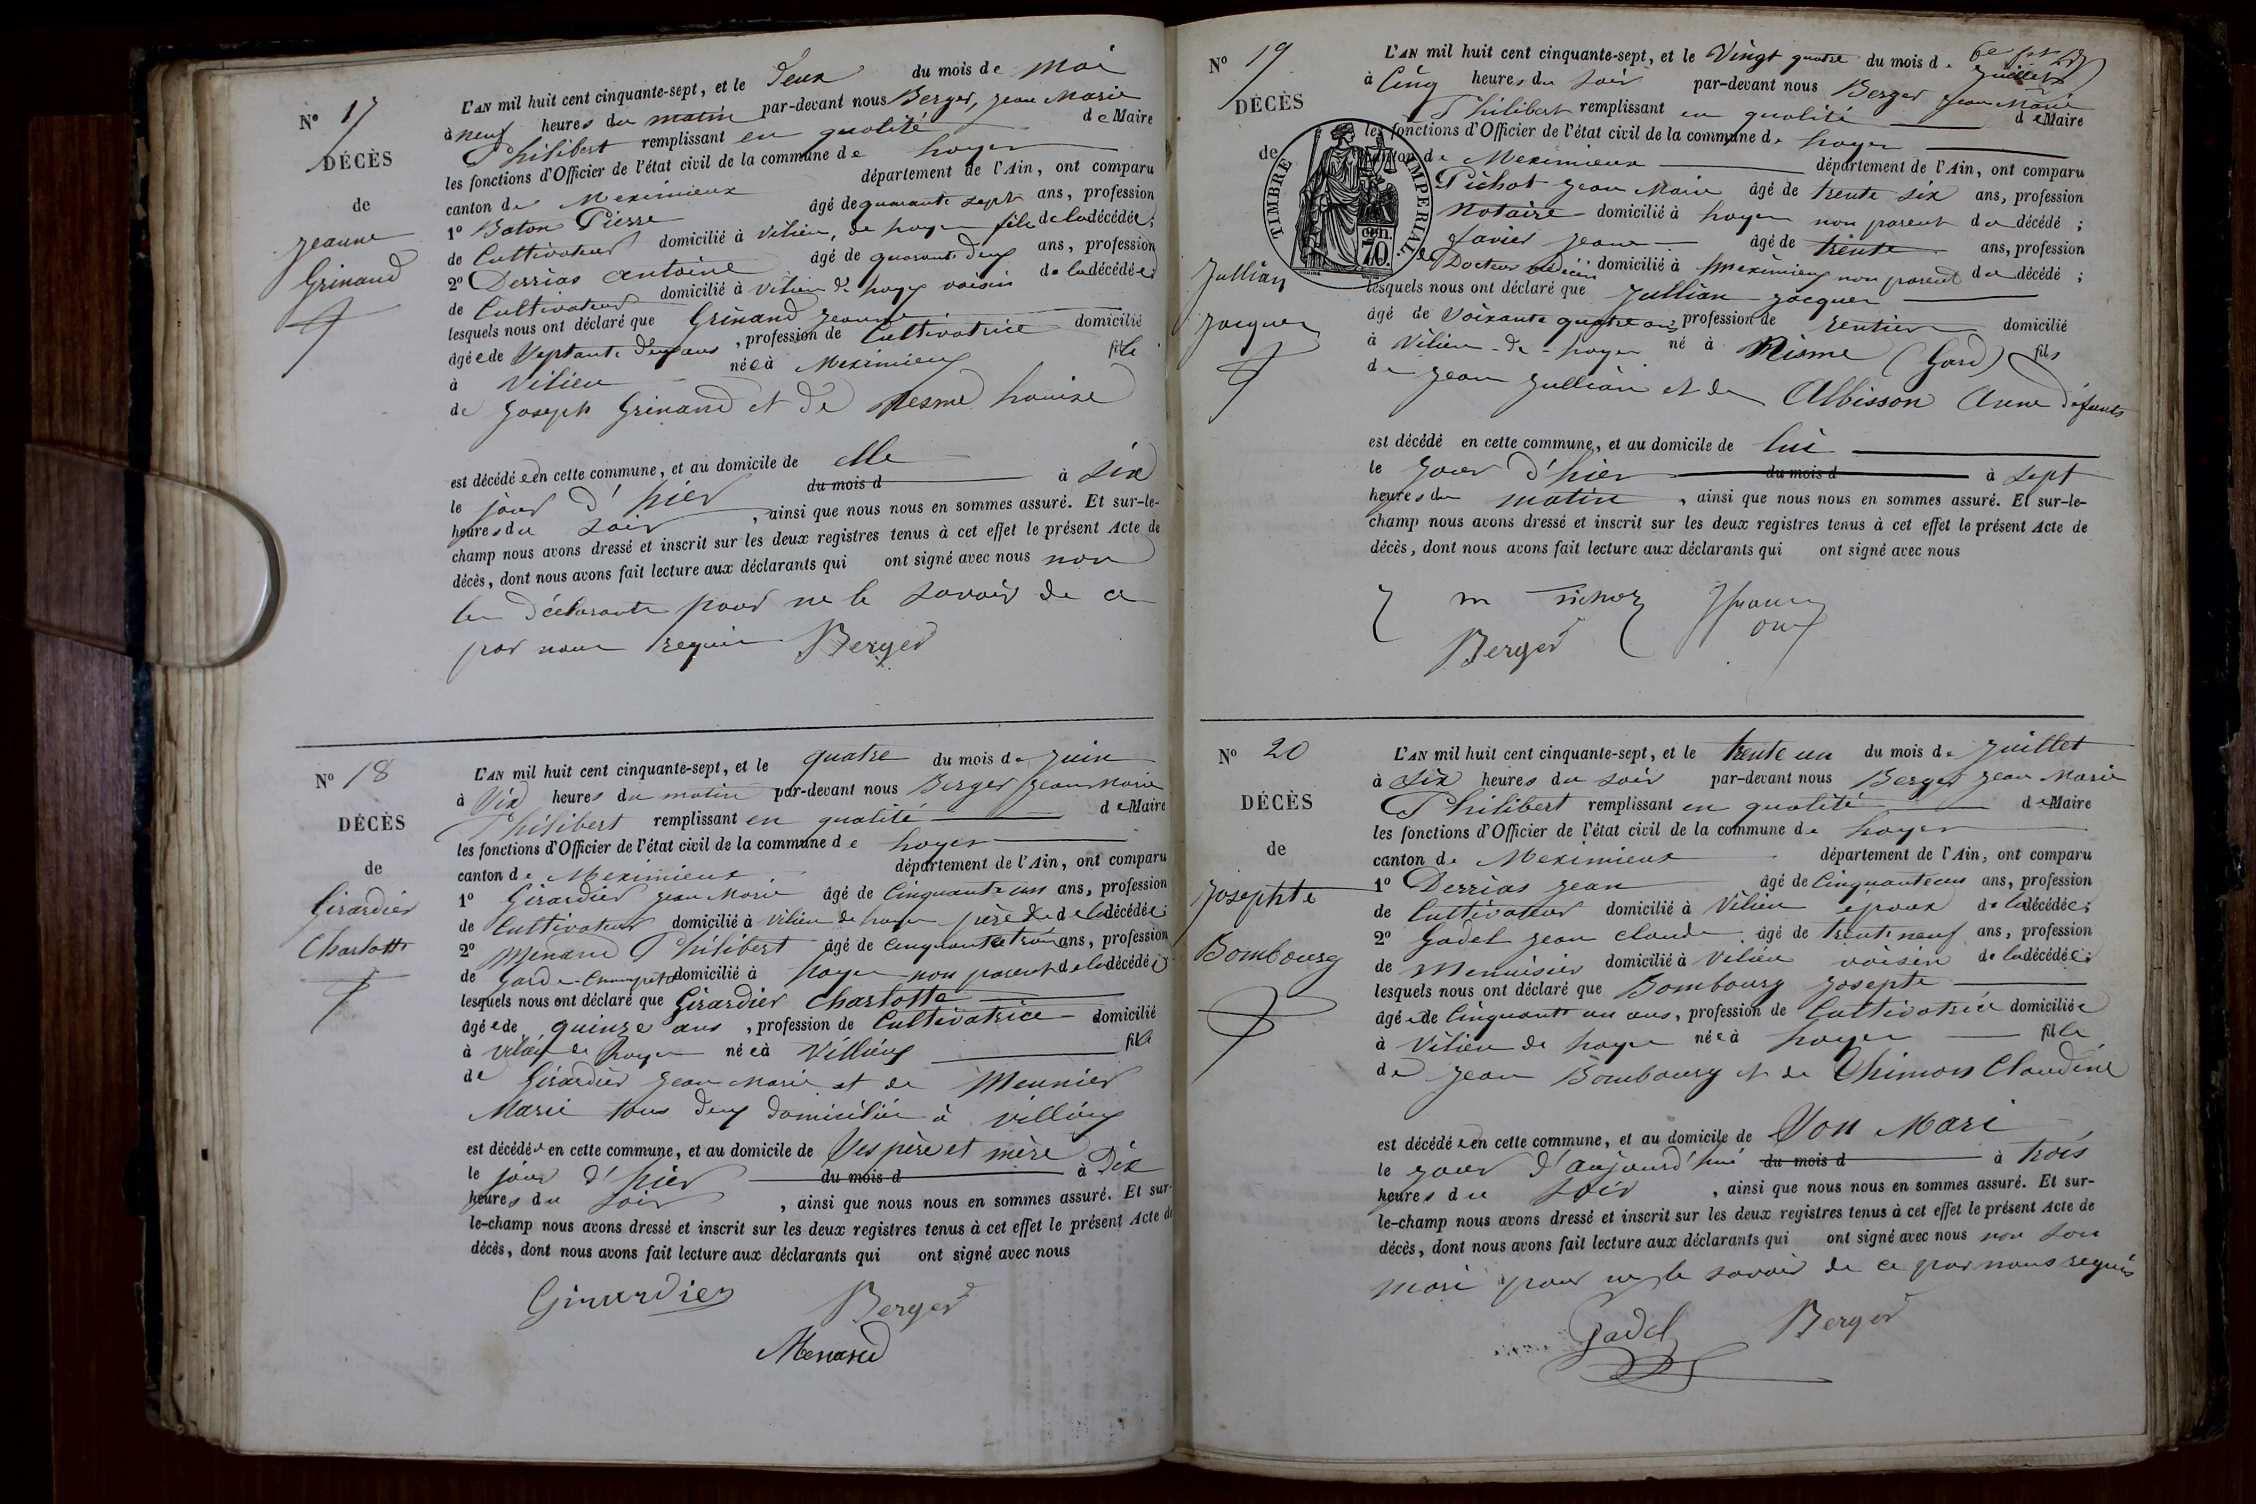 N° 17
DÉCÈS
de
Jeanne
Grinand
L'AN mil huit cent cinquante-sept, et le Deux du mois de Mai
à neuf heures du matin par-devant nous Berger, Jean Marie
Philibert remplissant en qualité de Maire
les fonctions d'Officier de l'état civil de la commune de Loyes
canton de Meximieux département de l'Ain, ont comparu
1° Baton Pierre âgé de quarante sept ans, profession
de Cultivateur domicilié à Vilieu, de Loyes fils de la décédée;
2° Derrias Antoine âgé de quarante deux ans, profession
de Cultivateur domicilié à Vilieu de Loyes voisin de la décédée
lesquels nous ont déclaré que Grinand Jeanne
âgée de Septante deux ans, profession de Cultivatrice domicilié
à Vilieu née à Meximieux fille
de Joseph Grinand et de Mesme Louise
est décédée en cette commune, et au domicile de elle
le jour d'hier du mois d à six
heures du soir, ainsi que nous nous en sommes assuré. Et sur-le-
champ nous avons dressé et inscrit sur les deux registres tenus à cet effet le présent Acte de
décès, dont nous avons fait lecture aux déclarants qui ont signé avec nous non
les déclarants pour ne le savoir de ce
par nous requis Berger
N° 18
DÉCÈS
de
Girardier
Charlotte
L'AN mil huit cent cinquante-sept, et le quatre du mois de Juin
à Six heures du matin par-devant nous Berger Jean Marie
Philibert remplissant en qualité de Maire
les fonctions d'Officier de l'état civil de la commune de Loyes
canton de Meximieux département de l'Ain, ont comparu
1° Girardier Jean Marie âgé de Cinquante un ans, profession
de Cultivateur domicilié à Vilieu de Loyes père de la décédée;
2° Menand Philibert âgé de cinquante trois ans, profession
de Garde-Champêtre domicilié à Loyes non parent de la décédée;
lesquels nous ont déclaré que Girardier Charlotte
âgée de quinze ans, profession de Cultivatrice domicilié
à Vilieu de Loyes née à Villieux fille
de Girardier Jean Marie et de Meunier
Marie tous deux domiciliés à Villieux
est décédée en cette commune, et au domicile de Ses père et mère
le jour d'hier du mois d à Dix
heures du soir, ainsi que nous nous en sommes assuré. Et sur-
le-champ nous avons dressé et inscrit sur les deux registres tenus à cet effet le présent Acte de
décès, dont nous avons fait lecture aux déclarants qui ont signé avec nous
Girardier Berger
Menand
N° 19
DÉCÈS
de
Jullian
Jacques
TIMBRE IMPERIAL
70
L'AN mil huit cent cinquante-sept, et le Vingt quatre du mois de Juillet
à Cinq heures du soir par-devant nous Berger Jean Marie
Philibert remplissant en qualité de Maire
les fonctions d'Officier de l'état civil de la commune de Loyes
canton de Meximieux département de l'Ain, ont comparu
Pichot Jean Marie âgé de trente six ans, profession
Notaire domicilié à Loyes non parent du décédé;
Javier Jeane âgé de trente ans, profession
de Docteur médecin domicilié à Meximieux non parent du décédé;
lesquels nous ont déclaré que Jullian Jacques
âgé de Soixante quatre ans, profession de rentier domicilié
à Vilieu-de-Loyes né à Nisme (Gard) fils
de Jean Jullian et de Albisson Anne défunts
est décédé en cette commune, et au domicile de lui
le jour d'hier du mois d à sept
heures du matin, ainsi que nous nous en sommes assuré. Et sur-le-
champ nous avons dressé et inscrit sur les deux registres tenus à cet effet le présent Acte de
décès, dont nous avons fait lecture aux déclarants qui ont signé avec nous
Berger
N° 20
DÉCÈS
de
Josephte
Bombourg
L'AN mil huit cent cinquante-sept, et le trente un du mois de Juillet
à Six heures du soir par-devant nous Berger Jean Marie
Philibert remplissant en qualité de Maire
les fonctions d'Officier de l'état civil de la commune de Loyes
canton de Meximieux département de l'Ain, ont comparu
1° Derrias Jean âgé de Cinquante un ans, profession
de Cultivateur domicilié à Vilieu époux de la décédée;
2° Gadel Jean Claude âgé de trente neuf ans, profession
de Menuisier domicilié à Vilieu voisin de la décédée;
lesquels nous ont déclaré que Bombourg Josepte
âgée de Cinquante un ans, profession de Cultivatrice domiciliée
à Vilieu de Loyes née à Loyes fille
de Jean Bombourg et de Thimon Claudine
est décédée en cette commune, et au domicile de Son Mari
le jour d'aujourd'hui du mois d à trois
heures du soir, ainsi que nous nous en sommes assuré. Et sur-
le-champ nous avons dressé et inscrit sur les deux registres tenus à cet effet le présent Acte de
décès, dont nous avons fait lecture aux déclarants qui ont signé avec nous non son
mari pour ne le savoir de ce par nous requis
Gadel Berger